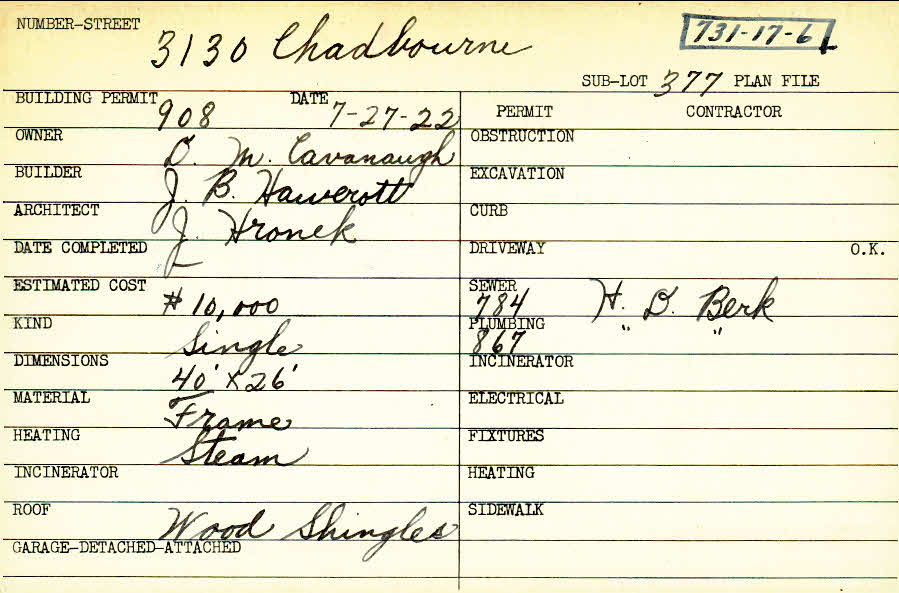 NUMBER-STREET 3130 Chadbourne 731-17-6
SUB-LOT 377 PLAN FILE
BUILDING PERMIT 908 DATE 7-27-22
PERMIT CONTRACTOR
OWNER D. M. Cavanaugh
OBSTRUCTION
BUILDER J. B. Hawerott
EXCAVATION
ARCHITECT J. Hronek
CURB
DATE COMPLETED
DRIVEWAY O.K.
ESTIMATED COST $10,000
SEWER 784 H. D. Berk
KIND Single
PLUMBING 867 " "
DIMENSIONS 40' x 26'
INCINERATOR
MATERIAL Frame
ELECTRICAL
HEATING Steam
FIXTURES
INCINERATOR
HEATING
ROOF Wood Shingles
SIDEWALK
GARAGE-DETACHED-ATTACHED